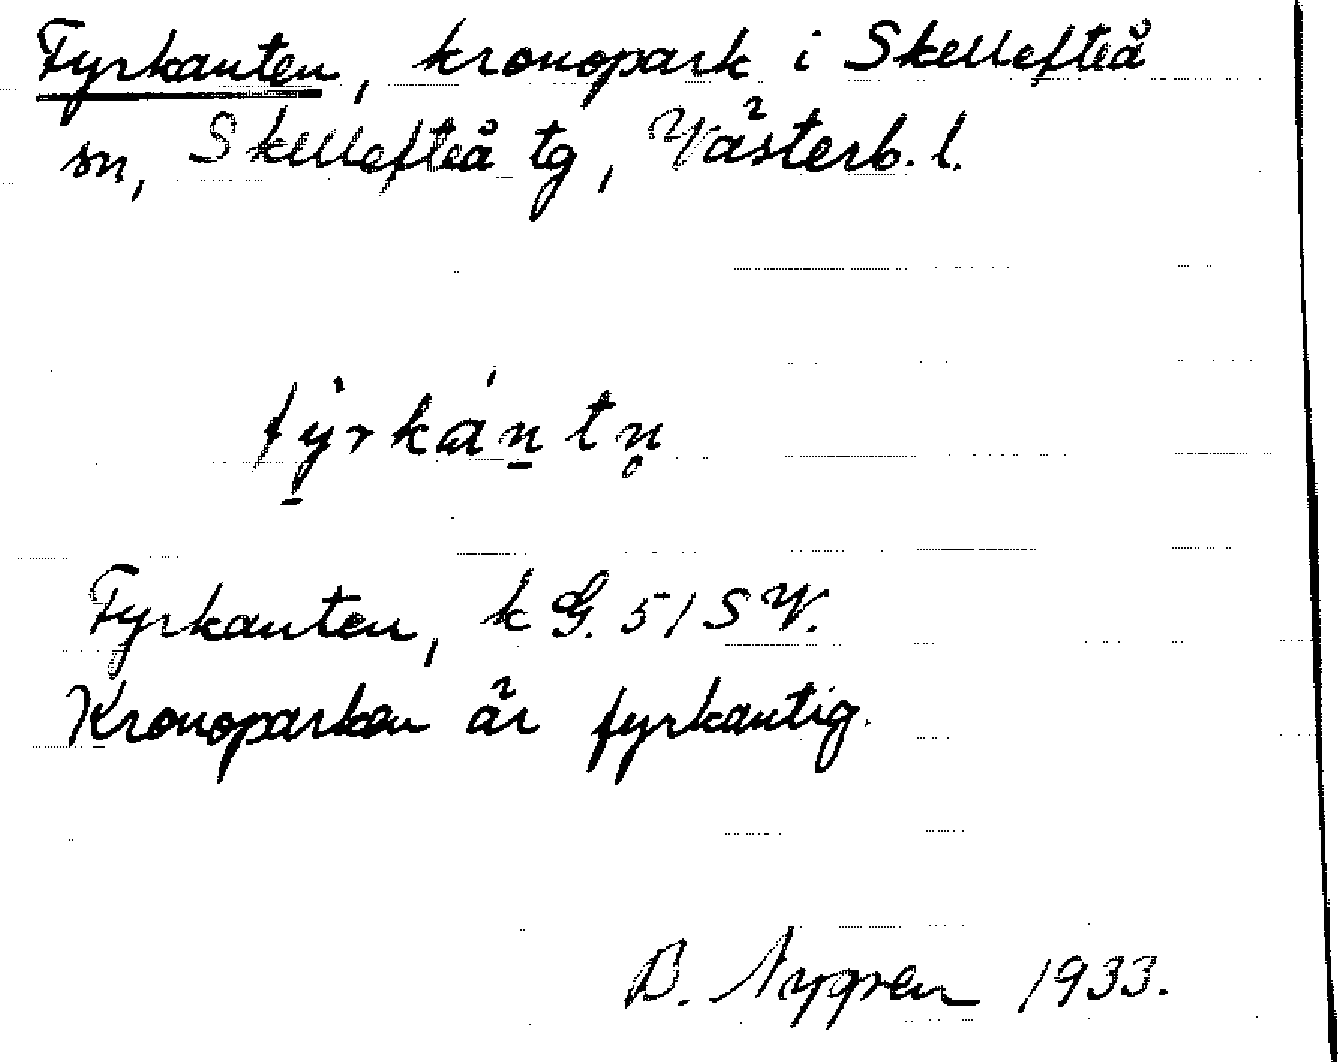 Fyrkanten, kronopark i Skellefteå
sn, Skellefteå tg, Västerb. l.
fỳ̱rkán̠tn̥
Fyrkanten, k G. 51 SV.
Kronoparken är fyrkantig.
B. Nygren 1933.